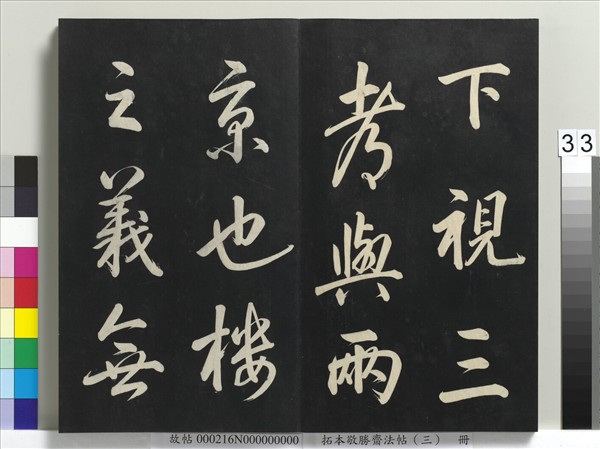 下視三
考與兩
京也楼
之義無
33
故帖 000216N000000000 拓本敬勝齋法帖（三） 冊